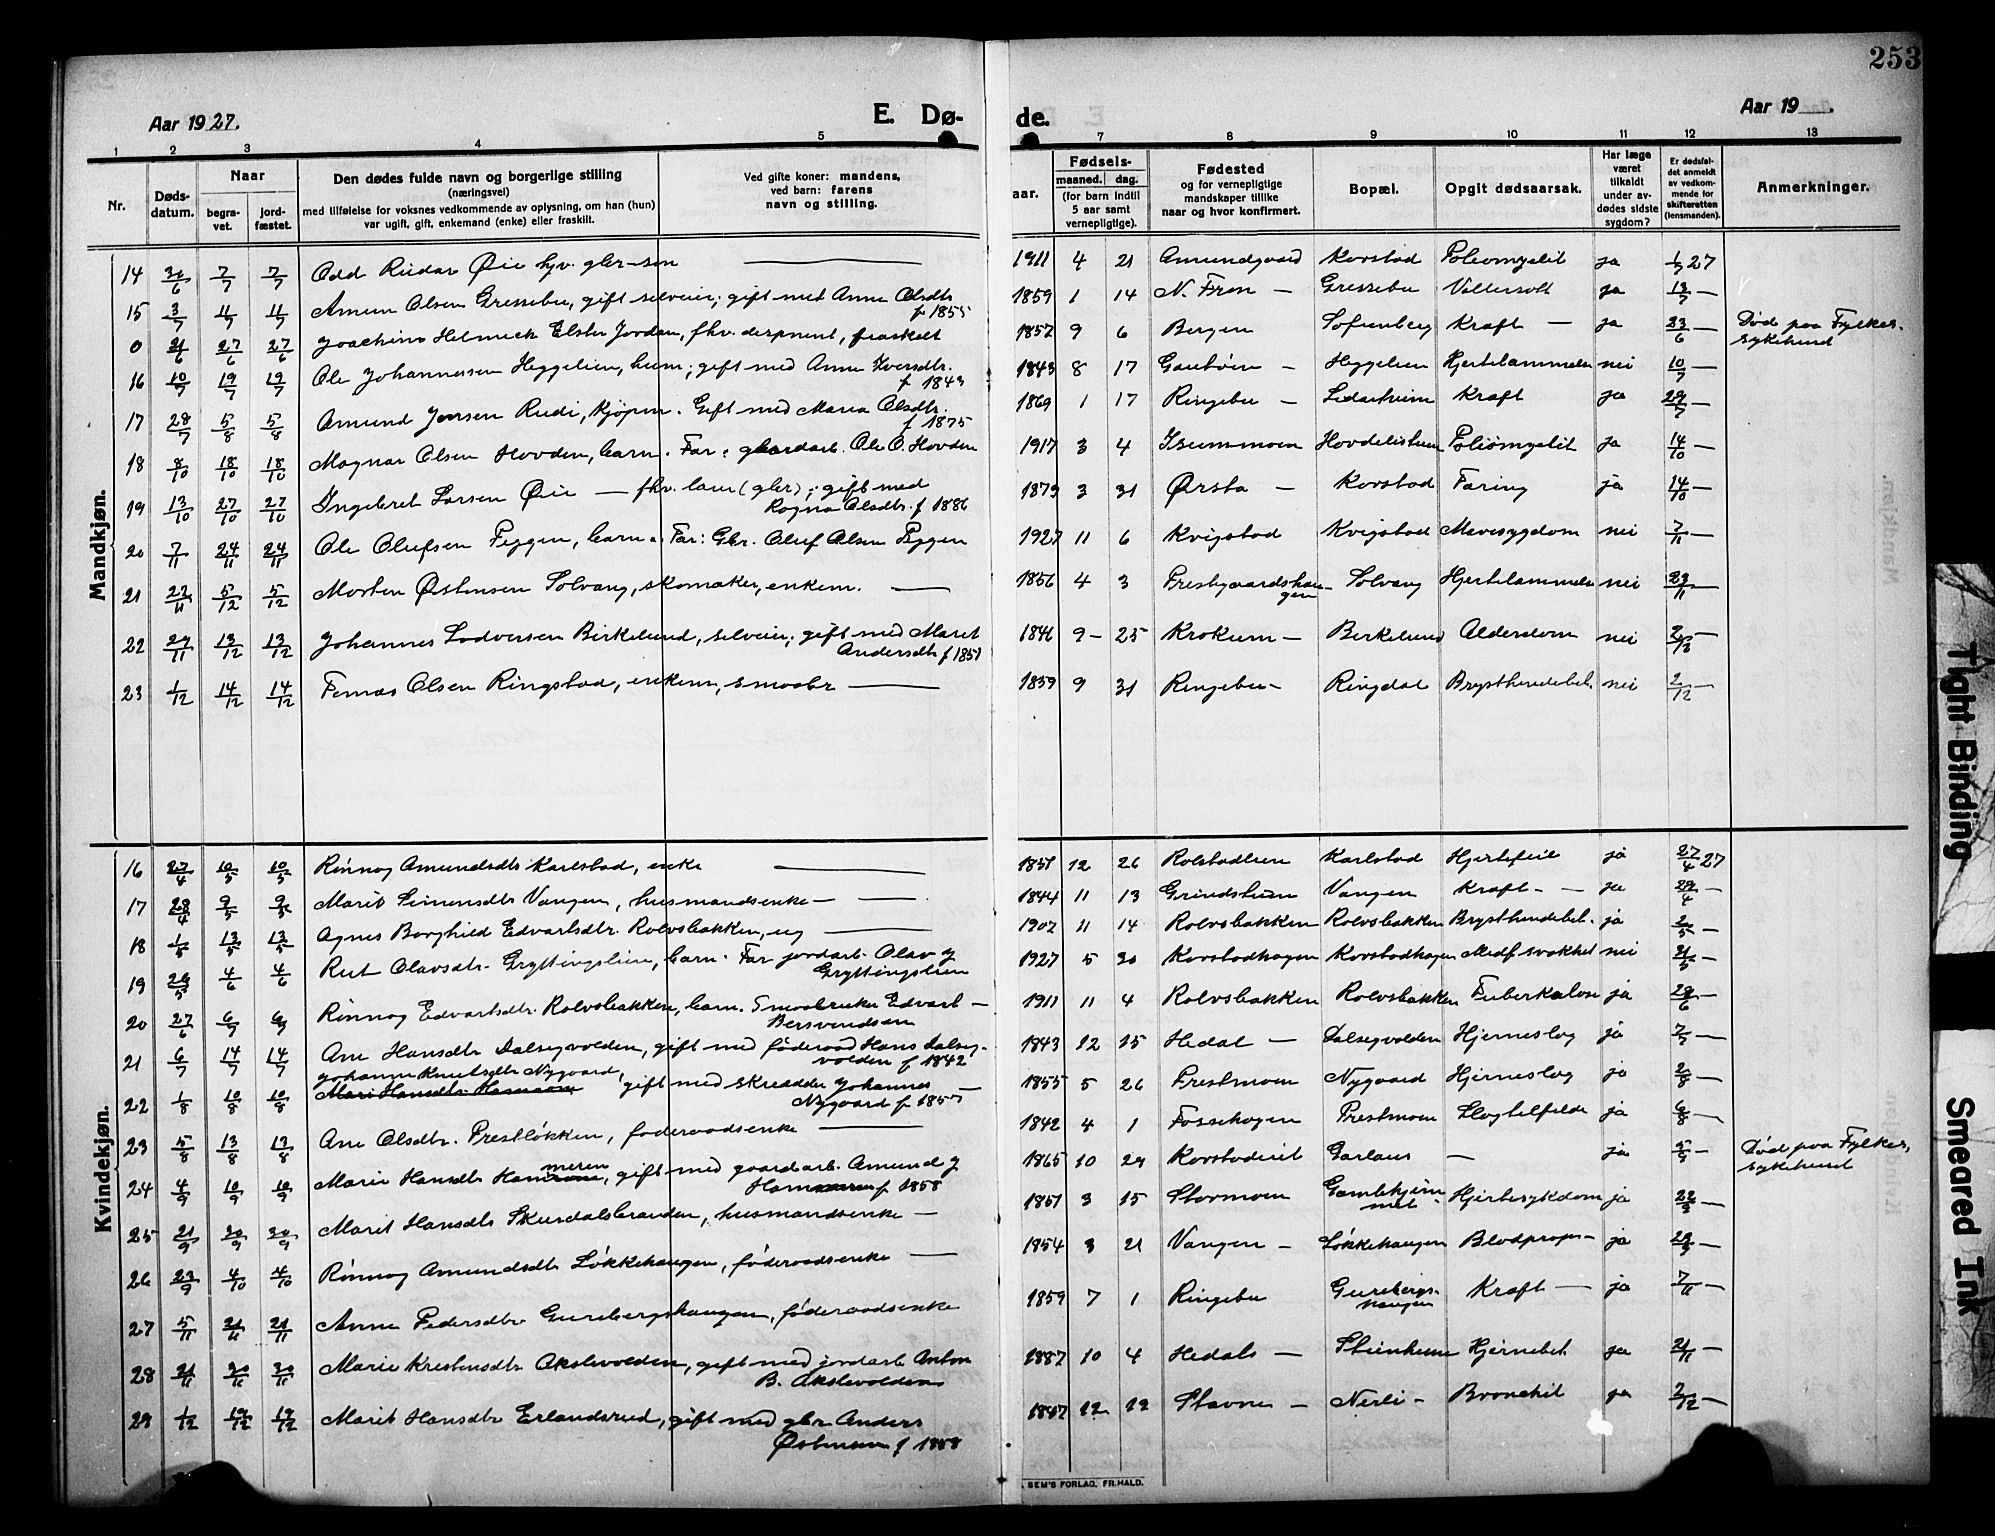 253
Aar 1927.
E. Dø-
de.
Aar 19
1 2 3 4 5 7 8 9 10 11 12 13
Nr.
Døds-
datum.
Naar
begra-
vet.
jord-
fæstet.
Den dødes fulde navn og borgerlige stilling
(næringsvei)
med tilføielse for voksnes vedkommende av oplysning, om han (hun)
var ugift, gift, enkemand (enke) eller fraskilt.
Ved gifte koner: mandens,
ved barn: farens
navn og stilling.
aar.
Fødsels-
maaned. dag.
(for barn indtil
5 aar samt
vernepligtige).
Fødested
og for vernepligtige
mandskaper tillike
naar og hvor konfirmert.
Bopæl.
Opgit dødsaarsak.
Har læge
været
tilkaldt
under av-
dødes sidste
sygdom?
Er dødsfal-
det anmeldt
av vedkom-
mende for
skifteretten
(lensmanden).
Anmerkninger.
Mandkjøn.
14 30/6 7/7 7/7 Odd Reidar Øie hjv. gbr-søn — 1911 4 21 Amundgaard Korstad Poliomyelit ja 1/7 27
15 3/7 11/7 11/7 Amun Olsen Gressebu, gift selveier; gift med Anne Olsdtr.
f 1855 1859 1 14 N. Fron — Gressebu Vattersott ja 13/7 —
0 21/6 27/6 27/6 Joachim Helmick Elster Jordan, fhv. disponent, fraskilt 1857 9 6 Bergen Sofienberg Kraft — ja 23/6 — Død paa Fylkes-
sykehuset
16 10/7 19/7 19/7 Ole Johannessen Heggelien, husm; gift med Anne Iversdtr.
f 1843 1843 8 17 Heggelien Hjertelammelse nei 10/7 —
17 28/7 5/8 5/8 Amund Jensen Rudi, kjøpm. Gift med Maria Olsdtr.
f 1875 1869 1 17 Ringebu — Kraft ja 29/7 —
18 8/10 18/10 18/10 Magnar Olsen Hovden, barn. Far: gaardarb. Ole O. Hovden 1917 3 4 Isummoen Hovdelistuen Poliomyelit ja 14/10 —
19 13/10 27/10 27/10 Ingebret Larsen Øie — fhv. lærer (gbr); gift med
Ragna Olsdtr. f 1886 1879 3 31 Ørsta — Korstad Tæring ja 14/10 —
20 7/11 24/11 24/11 Ole Olufsen Piggen, barn. Far: Gbr. Oluf Olsen Piggen 1927 11 6 Kvigstad Kvigstad Mavesygdom nei 7/11 —
21 22/11 5/12 5/12 Morten Østensen Solvang, skomaker, enkem. — 1856 4 3 Prestgaardshau-
gen — Solvang Hjertelammelse nei 23/11 —
22 27/11 13/12 13/12 Johannes Lodversen Birkelund, selveier; gift med Marit
Andersdtr f 1851 1846 9 — 25 Krokum — Birkelund Alderdom nei 2/12 —
23 1/12 14/12 14/12 Olsen Ringstad, enkem, smaabr — 1859 9 31 Ringebu — Ringdal Brysthindebet. nei 2/12 —
Kvindekjøn.
16 27/4 10/5 10/5 Rønnog Amundsdtr Karlstad, enke — 1851 12 26 Rolstadlien Karlstad Hjertefeil ja 27/4 27
17 28/4 9/5 9/5 Marit Simensdtr Vangen, husmandsenke — — 1844 11 13 Grindstuen Vangen Kraft — — ja 29/4 —
18 1/5 13/5 13/5 Agnes Borghild Edvartsdtr. Rolvsbakken, ug — 1902 11 14 Rolvsbakken Rolvsbakken Brysthindebet. ja 2/5 —
19 26/5 4/6 4/6 Rut Olavsdtr. Gryttingslien, barn. Far jordarb. Olav J
Gryttingslien 1927 5 20 Korstadhagen Korstadhagen Medf svakhet nei 31/5 —
20 27/6 6/7 6/7 Rønnog Edvartsdtr. Rolvsbakken, barn. Smaabruker Edvart —
Bersvendsen 1911 11 4 Rolvsbakken Rolvsbakken Tuberkulose ja 28/6 —
21 6/7 14/7 14/7 Ane Hansdtr Dalsegvolden, gift med føderaad Hans Dalseg-
volden f 1842 1843 12 15 Hedal — Dalsegvolden Hjerneslag ja 7/7 —
Johanne Knutsdtr Nygaard,
22 1/8 10/8 10/8 gift med skredder Johannes —
Nygaard f 1857 1855 5 26 Prestmoen Nygaard Hjerneslag ja 2/8 —
23 5/8 13/8 13/8 Ane Olsdtr. Prestløkken, føderaadsenke — 1842 4 1 Fossehagen Prestmoen Slagtilfelde ja 6/8 —
24 4/9 10/9 10/9 Marie Hansdtr Hammeren, gift med gaardarb. Amund J
Hammeren f 1858 1865 10 29 Korstadeiet — ja 5/9 — Død paa Fylkes-
sykehuset
25 21/9 30/9 30/9 Marit Hansdtr Skurdalsbranden, husmandsenke — 1851 3 15 Stormoen Gamlehjem-
met Hjertesykdom ja 22/9 —
26 23/9 4/10 4/10 Rønnog Amundsdtr Løkkehaugen, føderaadsenke — 1854 3 21 Vangen — Løkkehaugen Blodprop — ja 29/9 —
27 5/11 21/11 21/11 Anne Pedersdtr Gunsbergshaugen, føderaadsenke 1859 7 1 Ringebu Kraft — ja 7/11 —
28 21/11 30/11 30/11 Marie Kristensdtr Akslevolden, gift med jordarb Anton
B. Akslevolden 1887 10 4 Hedals — Steinstuen Hjernebet ja 21/11 —
29 1/12 19/12 19/12 Marit Hansdtr Erlandsrud, gift med gbr Anders
Østensen f 1858 1847 12 12 Stavne — Nerli — Bronchit ja 2/12 —
SEM'S FORLAG, FR.HALD.
Tight Binding
Smeared Ink